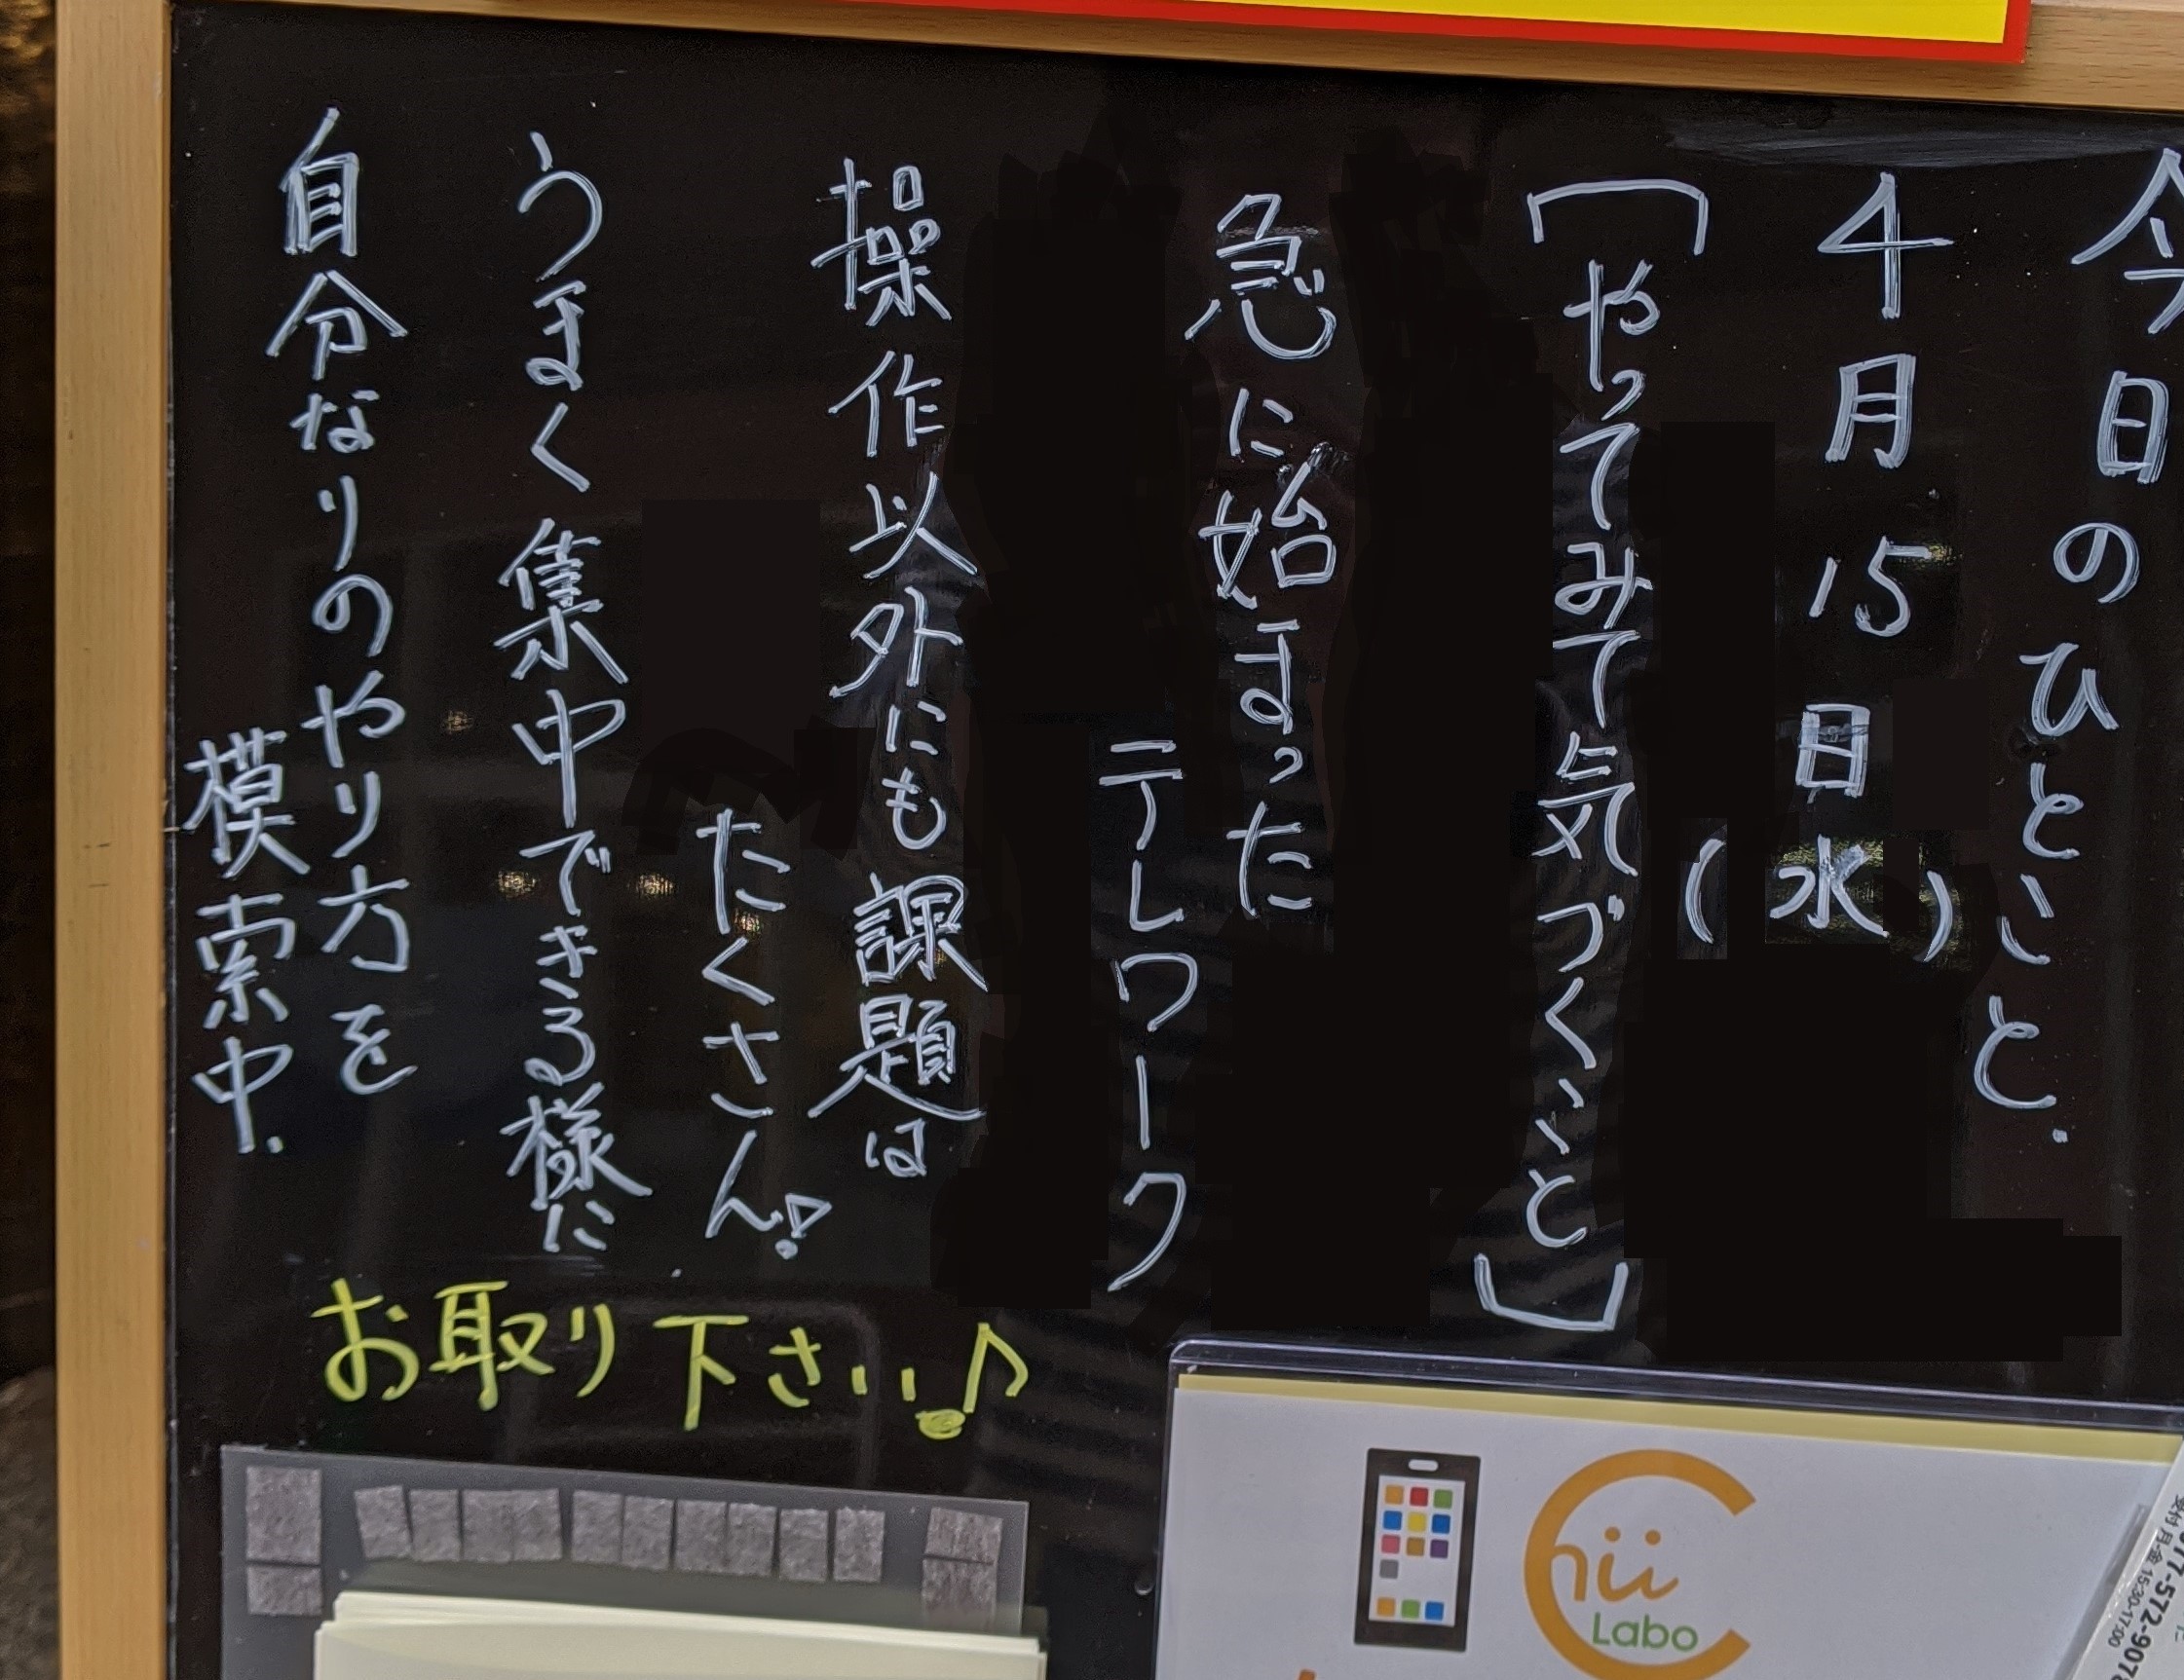 今日のひとこと.
4月15日(水)
「やってみて気づくこと」
急に始まった
テレワーク
操作以外にも課題は
たくさん♪
うまく集中できる様に
自分なりのやり方を
模索中.
お取り下さい♪
Chii
Labo